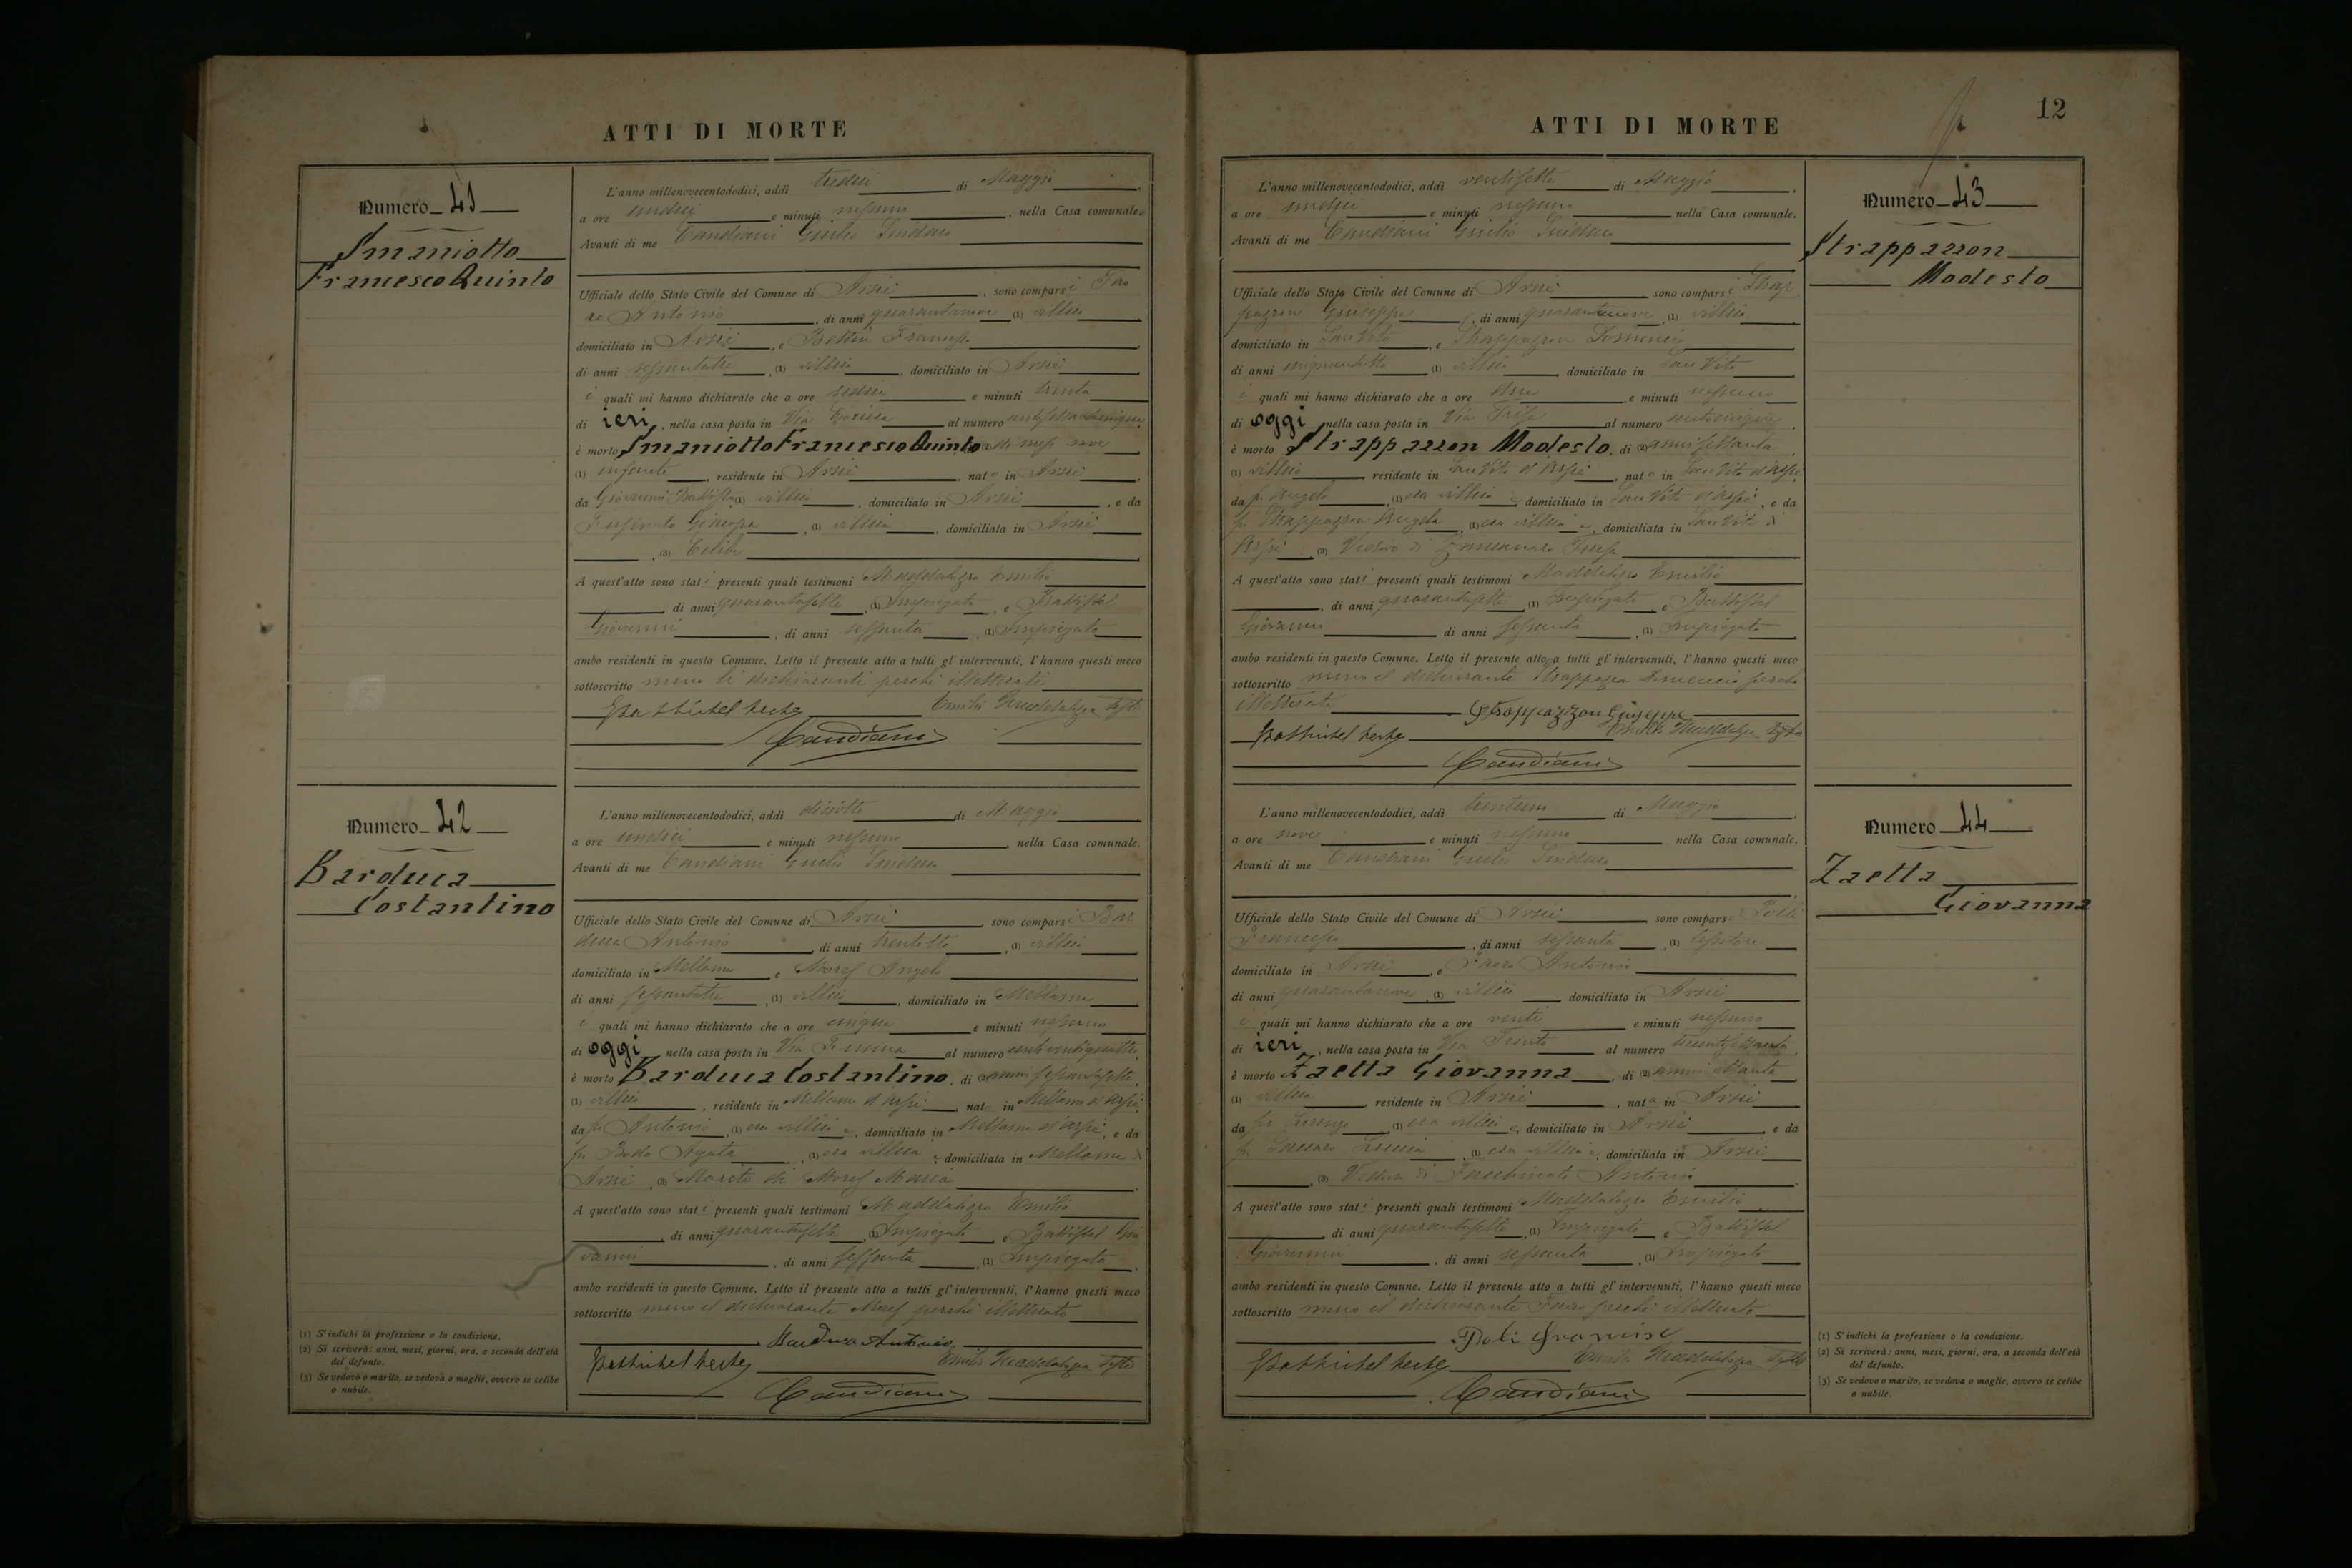 ATTI DI MORTE
Numero 41
Smaniotto
Francesco Quinto
L'anno millenovecentododici, addì tredici di Maggio
a ore undici e minuti nessuno, nella Casa comunale.
Avanti di me Candiani Giulio Sindaco
Ufficiale dello Stato Civile del Comune di Arsiè, sono comparsi
Antonio, di anni quarantanove (1) villico
domiciliato in Arsiè, e Francesco
di anni sessantatre, (1) villico, domiciliato in Arsiè
i quali mi hanno dichiarato che a ore sedici e minuti trenta
di ieri, nella casa posta in Via al numero
è morto Smaniotto Francesco Quinto, (2) di mesi nove
(1) infante, residente in Arsiè, nato in Arsiè
da Giovanni Battista, (1) villico, domiciliato in Arsiè, e da
(1) villica, domiciliata in Arsiè
, (3) Celibe
A quest'atto sono stati presenti quali testimoni Maddalozzo Emilio
, di anni quarantasette, (1) Impiegato, e Battistel
Giovanni, di anni sessanta, (1) Impiegato
ambo residenti in questo Comune. Letto il presente atto a tutti gl'intervenuti, l'hanno questi meco
sottoscritto meno li dichiaranti perchè illetterati
Battistel teste Emilio Maddalozzo teste
Candiani
Numero 42
Barduca
Costantino
L'anno millenovecentododici, addì diciotto di Maggio
a ore undici e minuti nessuno, nella Casa comunale.
Avanti di me Candiani Giulio Sindaco
Ufficiale dello Stato Civile del Comune di Arsiè sono comparsi Bar
duca Antonio, di anni trentotto, (1) villico
domiciliato in Mellame e Angelo
di anni sessantatre, (1) villico, domiciliato in Mellame
i quali mi hanno dichiarato che a ore cinque e minuti nessuno
di oggi, nella casa posta in Via al numero centoventiquattro
è morto Barduca Costantino, di (2) anni sessantasette
(1) villico, residente in Mellame d'Arsiè nato in Mellame d'Arsiè
da fu Antonio, (1) era villico e, domiciliato in Mellame d'Arsiè, e da
fu Agata, (1) era villica e, domiciliata in Mellame di
Arsiè, (3) Marito di Maria
A quest'atto sono stati presenti quali testimoni Maddalozzo Emilio
, di anni quarantasette, (1) Impiegato, e Battistel Gio
vanni, di anni sessanta, (1) Impiegato
ambo residenti in questo Comune. Letto il presente atto a tutti gl'intervenuti, l'hanno questi meco
sottoscritto meno il dichiarante perchè illetterato
Barduca Antonio
Battistel teste Emilio Maddalozzo teste
Candiani
(1) S'indichi la professione o la condizione.
(2) Si scriverà: anni, mesi, giorni, ora, a seconda dell'età
del defunto.
(3) Se vedovo o marito, se vedova o moglie, ovvero se celibe
o nubile.
12
ATTI DI MORTE
Numero 43
Strappazzon
Modesto
L'anno millenovecentododici, addì ventisette di Maggio
a ore undici e minuti nessuno nella Casa comunale.
Avanti di me Candiani Giulio Sindaco
Ufficiale dello Stato Civile del Comune di Arsiè sono comparsi Strap
pazzon Giuseppe, di anni quarantanove, (1) villico
domiciliato in San Vito, e Strappazzon Domenico
di anni (1) villico domiciliato in San Vito
i quali mi hanno dichiarato che a ore due e minuti nessuno
di oggi, nella casa posta in Via al numero
è morto Strappazzon Modesto, di (2) anni settanta
(1) villico residente in San Vito d'Arsiè, nato in San Vito d'Arsiè
da fu Angelo, (1) era villico e, domiciliato in San Vito d'Arsiè, e da
fu Strappazzon Angela, (1) era villica e, domiciliata in San Vito di
Arsiè (3) Vedovo di
A quest'atto sono stati presenti quali testimoni Maddalozzo Emilio
, di anni quarantasette (1) Impiegato, e Battistel
Giovanni di anni sessanta, (1) Impiegato
ambo residenti in questo Comune. Letto il presente atto a tutti gl'intervenuti, l'hanno questi meco
sottoscritto meno il dichiarante Strappazzon Domenico perchè
illetterato Strappazzon Giuseppe
Battistel teste Emilio Maddalozzo teste
Candiani
Numero 44
Zaetta
Giovanna
L'anno millenovecentododici, addì trentuno di Maggio
a ore nove e minuti nessuno nella Casa comunale.
Avanti di me Candiani Giulio Sindaco
Ufficiale dello Stato Civile del Comune di Arsiè sono comparsi Polli
Francesco, di anni sessanta, (1)
domiciliato in Arsiè, e Antonio
di anni quarantanove, (1) villico domiciliato in Arsiè
i quali mi hanno dichiarato che a ore venti e minuti nessuno
di ieri, nella casa posta in Via Trento al numero
è morta Zaetta Giovanna, di (2) anni ottanta
(1) villica, residente in Arsiè, nata in Arsiè
da fu Lorenzo (1) era villico e, domiciliato in Arsiè, e da
fu Lucia, (1) era villica e, domiciliata in Arsiè
, (3) Vedova di Facchinato Antonio
A quest'atto sono stati presenti quali testimoni Maddalozzo Emilio
, di anni quarantasette, (1) Impiegato e Battistel
Giovanni, di anni sessanta, (1) Impiegato
ambo residenti in questo Comune. Letto il presente atto a tutti gl'intervenuti, l'hanno questi meco
sottoscritto meno il dichiarante perchè illetterato
Poli
Battistel teste Emilio Maddalozzo teste
Candiani
(1) S'indichi la professione o la condizione.
(2) Si scriverà: anni, mesi, giorni, ora, a seconda dell'età
del defunto.
(3) Se vedovo o marito, se vedova o moglie, ovvero se celibe
o nubile.